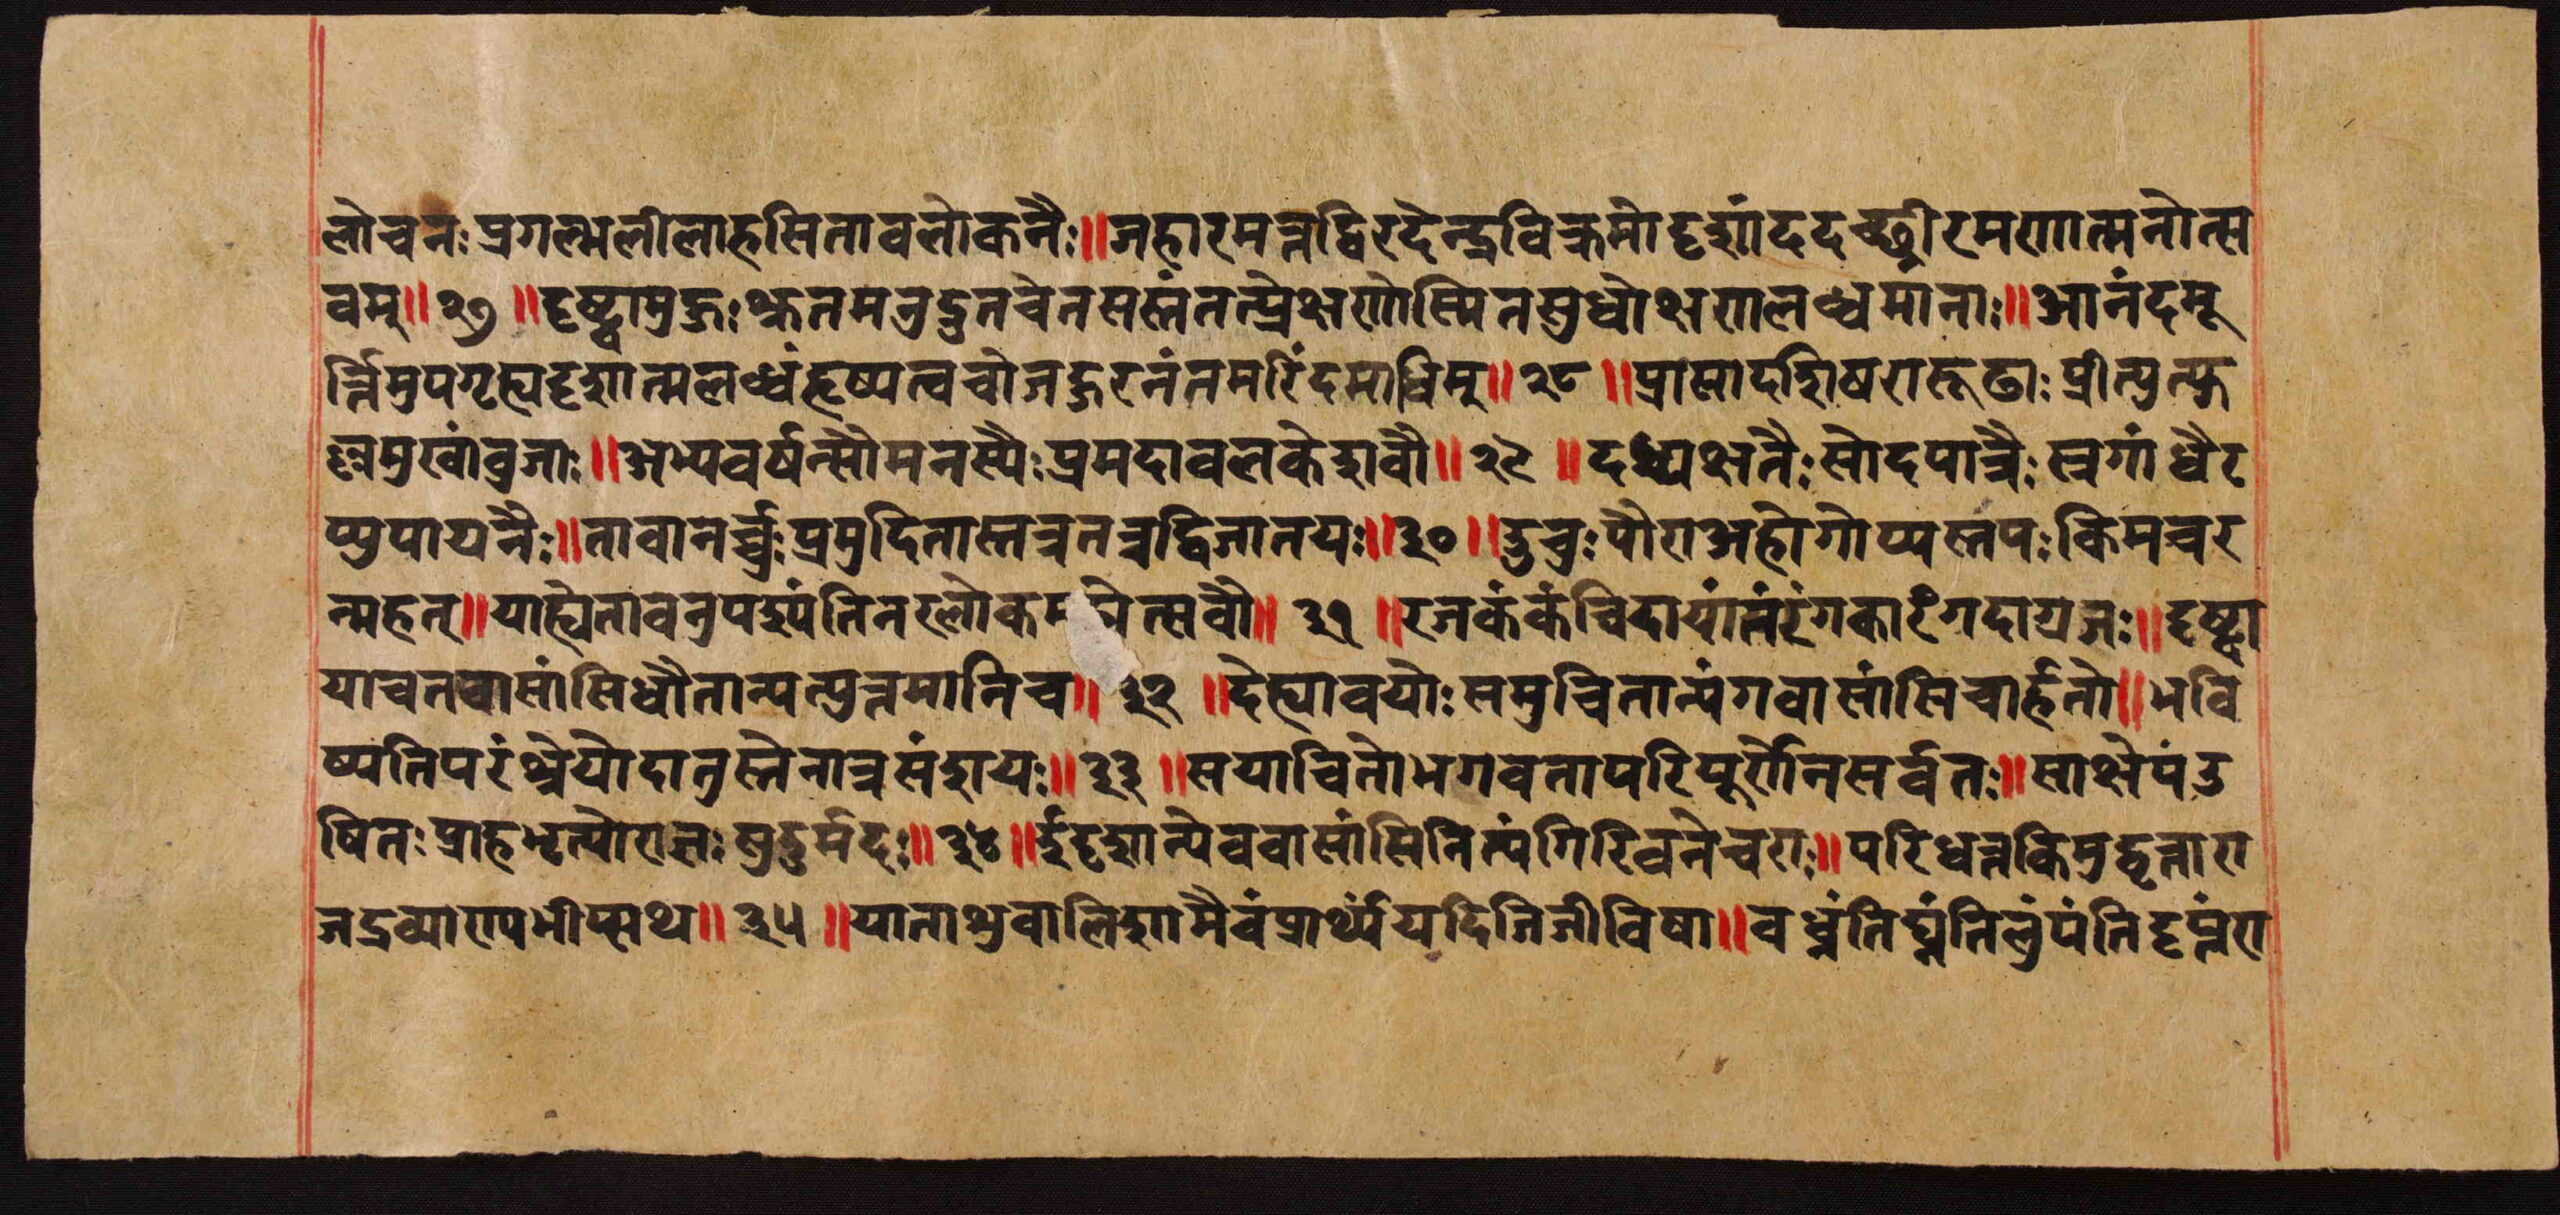 लोचनःप्रगल्भलीलाहसितावलोकनैः॥जहारमत्तद्विरदेन्द्रविक्रमोदृशांददच्छ्रीरमणात्मनोत्स
वम्॥२७॥दृष्ट्वामुहुःश्रुतमनुद्रुतचेतसस्तंतत्प्रेक्षणोस्मितसुधोक्षणलब्धमानाः॥आनंदमू
र्त्तिमुपगृह्यदृशात्मलब्धंहृष्यत्वचोजहुरनंतमरिंदमाधिम्॥२८॥प्रासादशिषरारूढाःप्रीत्युत्फु
ल्लमुखांवुजाः॥अभ्यवर्षन्सौमनस्यैःप्रमदावलकेशवौ॥२९॥दध्यक्षतैःसोदपात्रैःस्रगांधैर
प्युपायनैः॥तावानर्च्चुःप्रमुदितास्तत्रतत्रद्विजातयः॥३०॥उचुःपौराअहोगोप्यस्तपःकिमचर
न्महत्॥याह्येतावनुपश्यंतिनरलोकम त्सवौ॥३१॥रजकंकंचिदायांतंरंगकारंगदाग्रजः॥दृष्ट्वा
याचतवासांसिधौतान्यत्युत्तमानिच॥३२॥देह्यावयोःसमुचितान्यंगवासांसिचार्हतो॥भवि
ष्यतिपरंश्रेयोदातुस्तेनात्रसंशयः॥३३॥सयाचितोभगवतापरिपूर्णेनसर्वतः॥साक्षेपंरु
षितःप्राहभृत्योराज्ञःसुदुर्मदः॥३४॥ईदृशान्येववासांसिनित्यंगिरिवनेचराः॥परिधत्तकिमुद्वृत्तारा
जद्रव्याण्यभीप्सथ॥३५॥याताशुवालिशामैवंप्रार्थ्यंयदिजिजीविषा॥वध्नंतिघ्नंतिलुंपंतिदृप्तंरा